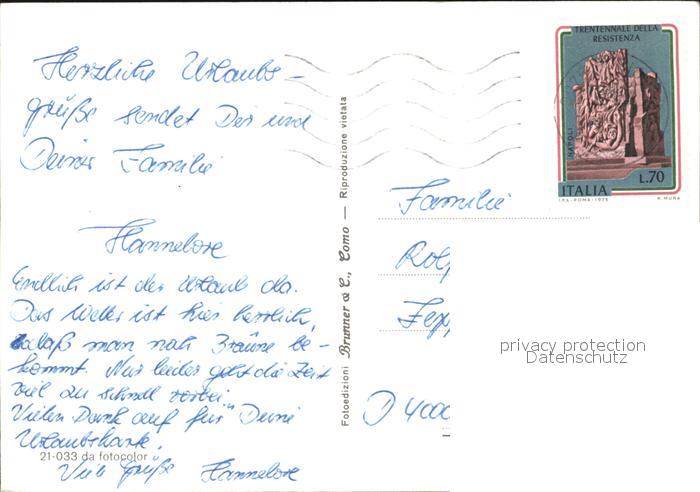 Herzliche Urlaubs-
grüße sendet Dir und
Deiner Familie
Hannelore
Endlich ist der Urlaub da.
Das Wetter ist hier herrlich,
sodaß man nah Bräune be-
kommt. Nur leider geht die Zeit
viel zu schnell vorbei.
Vielen Dank auf für Deine
Urlaubskarte.
Viele Grüße Hannelore
21-033 da fotocolor
Fotoedizioni Brunner & C., Como — Riproduzione vietata
TRENTENNALE DELLA
RESISTENZA
NAPOLI
L.70
ITALIA
I.P.S.-ROMA-1975 R. MURA
Familie
Rolf
D 4000
privacy protection
Datenschutz